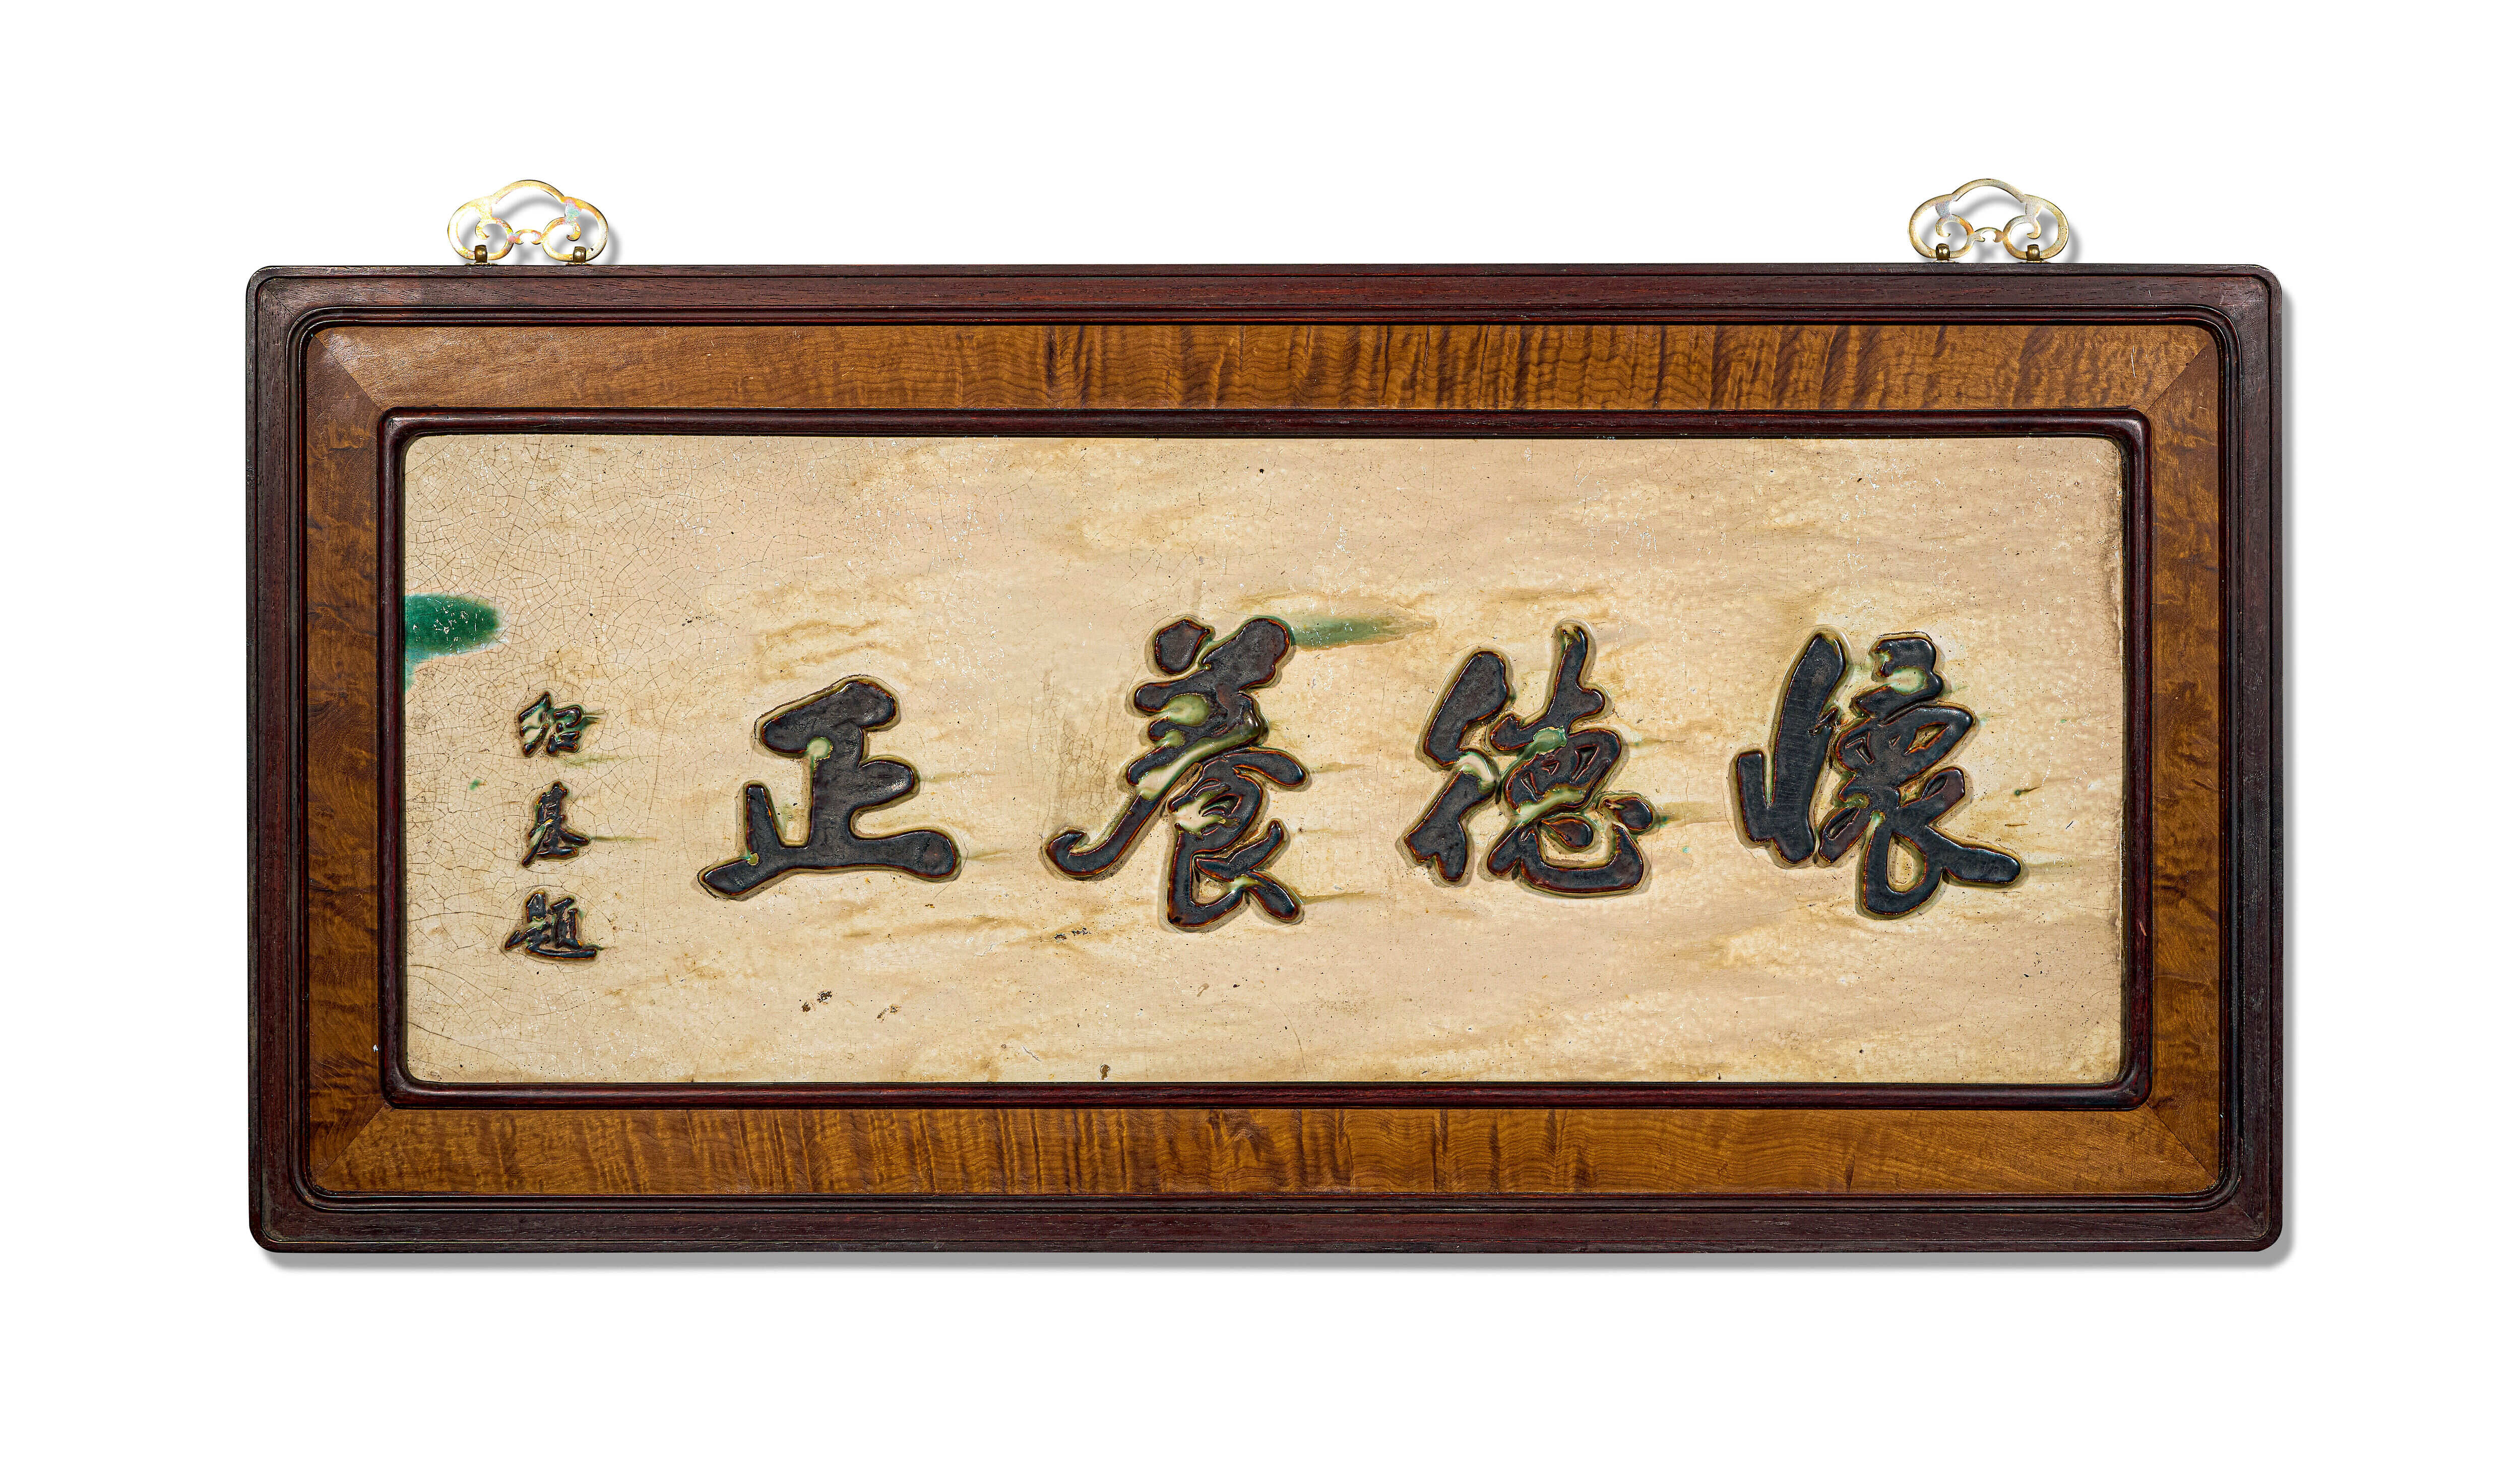 懷德養正
紹基題